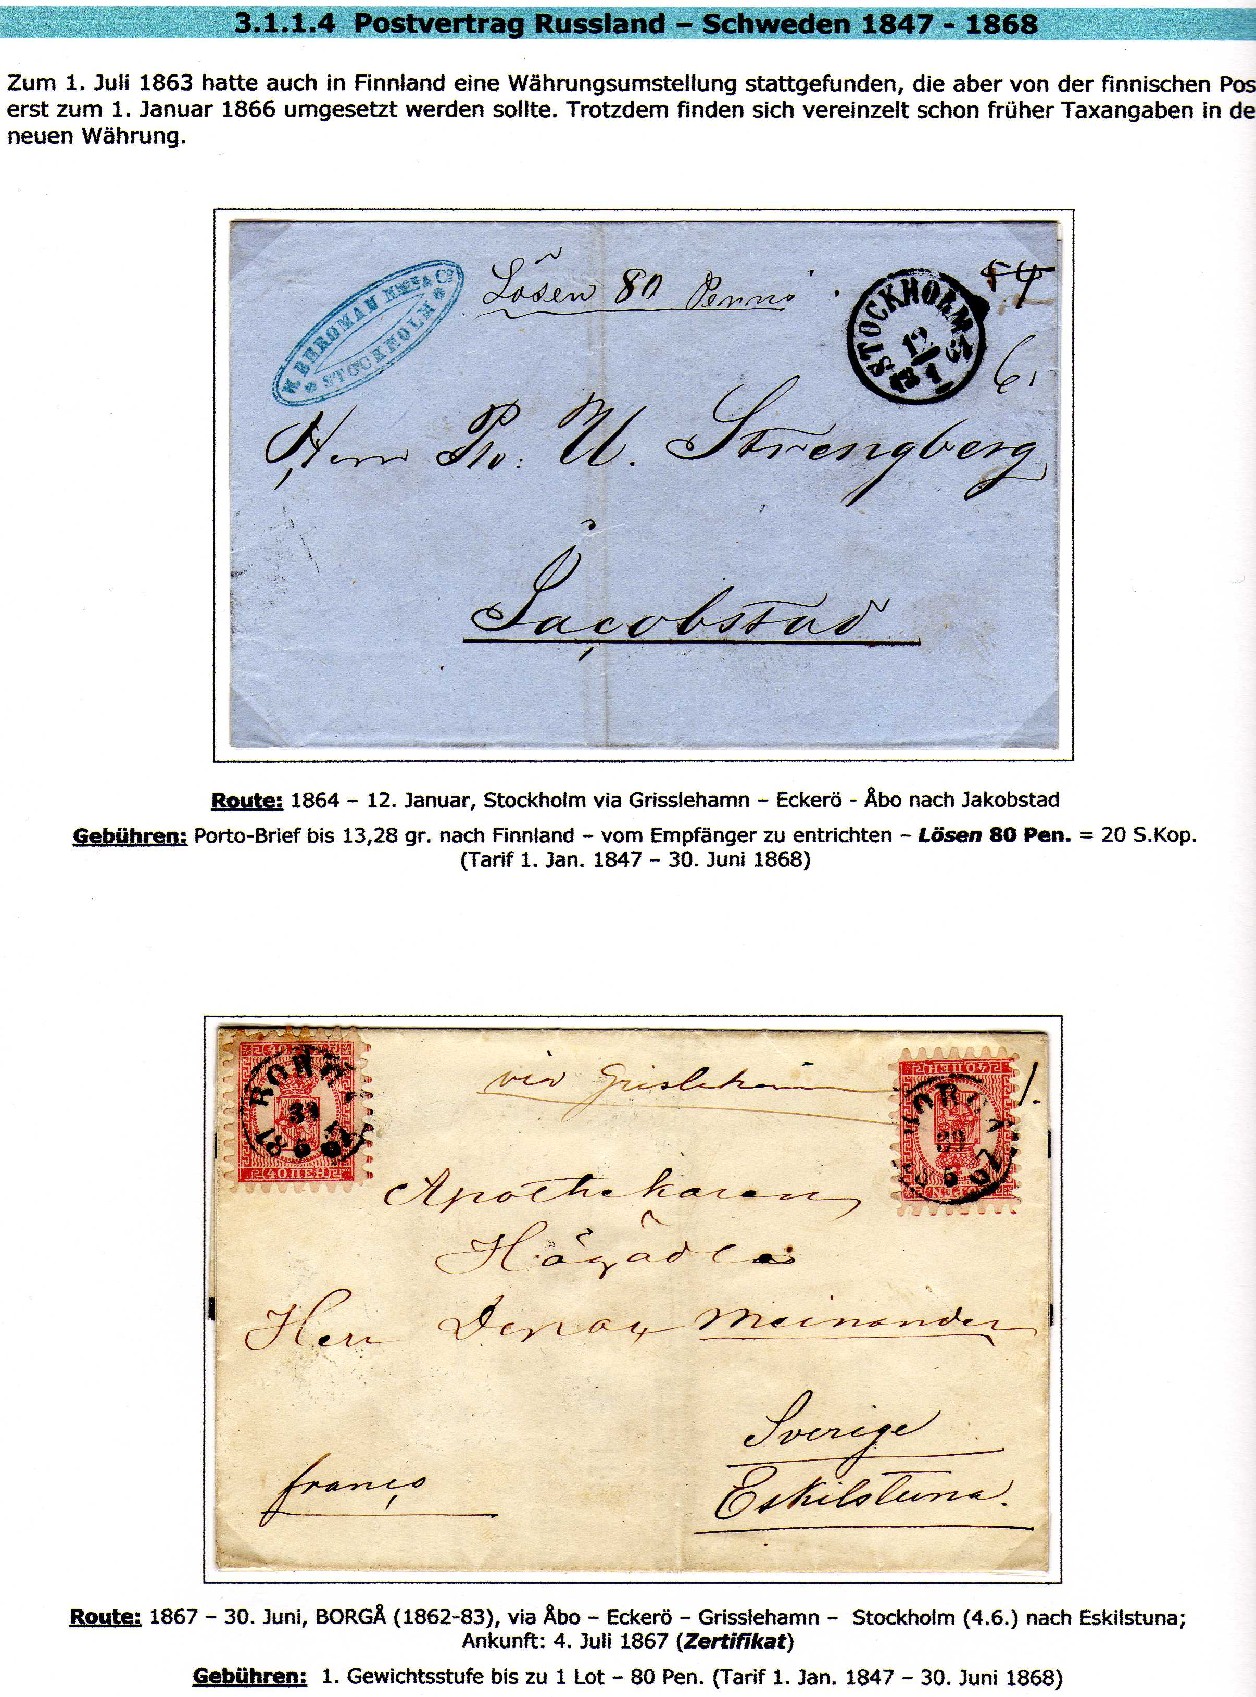 3.1.1.4 Postvertrag Russland – Schweden 1847 - 1868
Zum 1. Juli 1863 hatte auch in Finnland eine Währungsumstellung stattgefunden, die aber von der finnischen Pos
erst zum 1. Januar 1866 umgesetzt werden sollte. Trotzdem finden sich vereinzelt schon früher Taxangaben in de
neuen Währung.
STOCKHOLM
Lösen 80 Penni
STOCKHOLM
12
1
6
Herr P. U. Strengberg
Jacobstad
Route: 1864 – 12. Januar, Stockholm via Grisslehamn – Eckerö - Åbo nach Jakobstad
Gebühren: Porto-Brief bis 13,28 gr. nach Finnland – vom Empfänger zu entrichten – Lösen 80 Pen. = 20 S.Kop.
(Tarif 1. Jan. 1847 – 30. Juni 1868)
via Grislehamn
40 ПЕН
Apothekaren
Herr
Meinander
Sverige
Eskilstuna.
franco
Route: 1867 – 30. Juni, BORGÅ (1862-83), via Åbo – Eckerö – Grisslehamn – Stockholm (4.6.) nach Eskilstuna;
Ankunft: 4. Juli 1867 (Zertifikat)
Gebühren: 1. Gewichtsstufe bis zu 1 Lot – 80 Pen. (Tarif 1. Jan. 1847 – 30. Juni 1868)